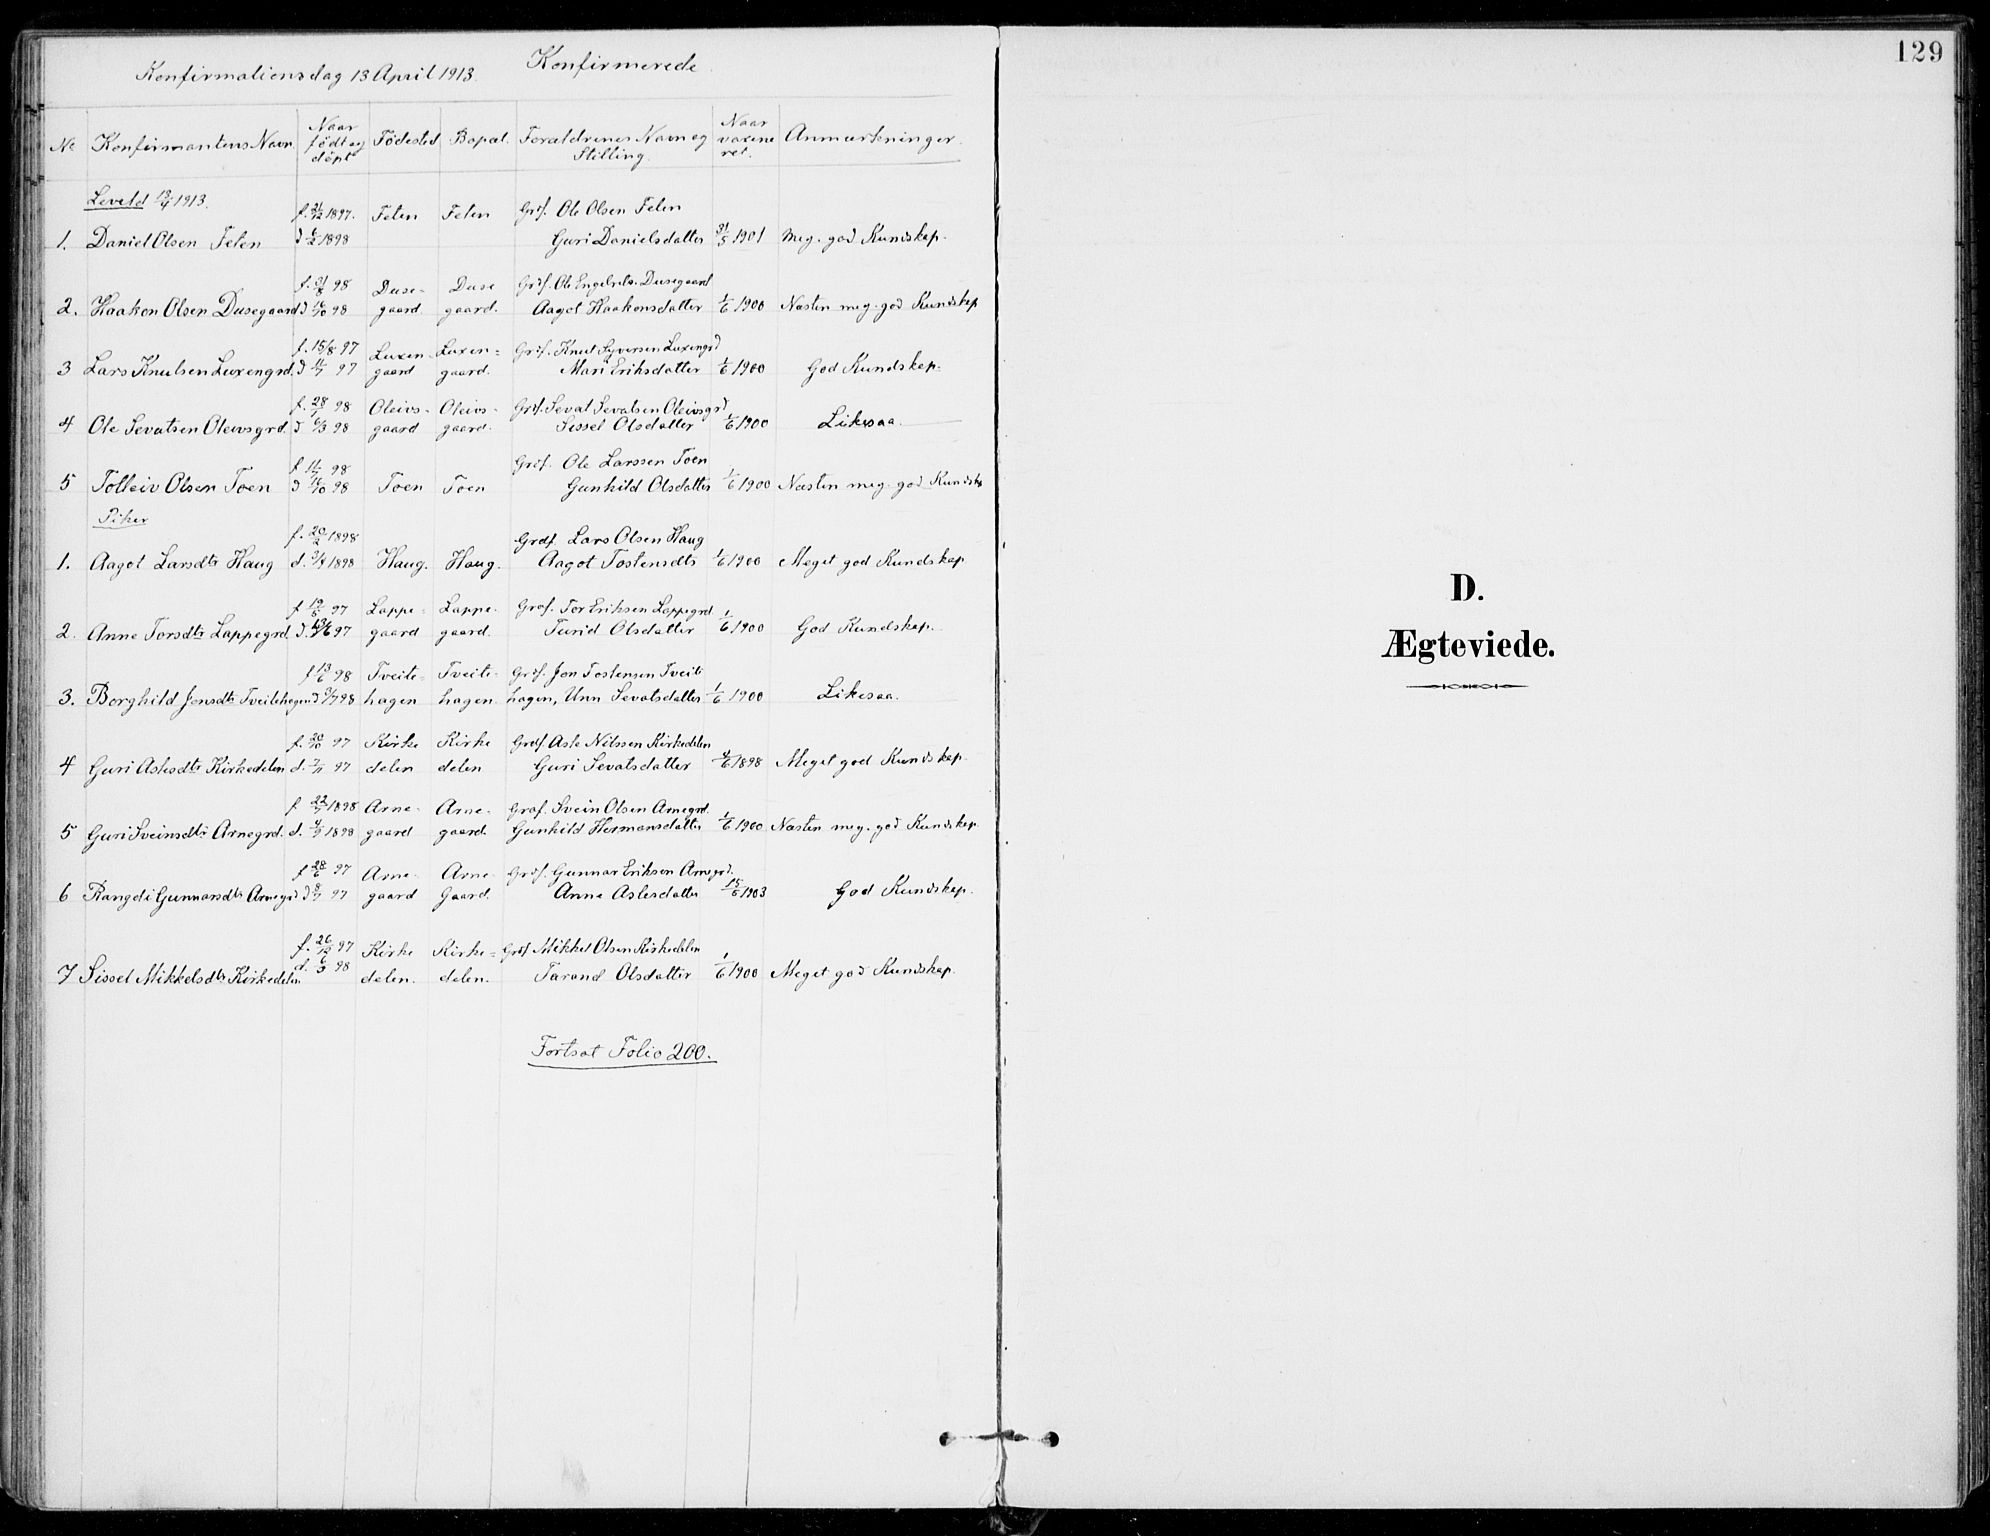 Konfirmationsdag 13 April 1913. Konfirmerede
No Konfirmantens Navn Naar født og døpt Fødested Bopæl. Forældrenes Navn og Stilling. Naar vaxineret. Anmærkninger.
Leveld 13/4 1913.
f. 1897. Felen Felen Grdf. Ole Olsen Felen
1. Daniel Olsen Felen d 1898 Guri Danielsdatter 31/5 1901 Meg. god Kundskap.
f. 31/8 98 Duse- Duse Grdf. Ole Engebrets. Dusegaard
2. Haakon Olsen Dusegaard d 16/10 98 gaard gaard. Aagot Haakonsdatter 1/6 1900 Næsten meg. god Kundskap
f. 15/8 97 Luxen- Luxen= Grdf. Knut Syversen Luxengrd
3 Lars Knutsen Luxengrd. d 97 gaard gaard. Mari Eriksdatter 1/6 1900 God Kundskap.
f. 28/1 98 Oleivs- Oleivs- Grdf. Sevat Sevatsen Oleivsgrd
4 Ole Sevatsen Oleivsgrd. d 6/3 98 gaard gaard. Sissel Olsdatter 1/6 1900 Likesaa.
f 98 Grdf. Ole Larssen Toen
5 Tolleiv Olsen Toen d 16/10 98 Toen Toen Gunhild Olsdatter 1/6 1900 Næsten meg. god Kundsk
Piker
f. 20/2 1898 Grdf. Lars Olsen Haug
1. Aagot Larsdtr Haug d. 3/4 1898 Haug. Haug. Aagot Tostensdtr 1/6 1900 Meget god Kundskap
f 97 Lappe= Lappe- Grdf. Tor Eriksen Lappegrd
2. Anne Torsdtr Lappegrd. d. 97 gaard gaard. Turid Olsdatter 1/6 1900 God Kundskap.
f 13/6 98 Tveite= Tveite- Grdf. Jon Tostensen Tveite
3. Borghild Jonsdtr Tveitehagen d 3/7 98 hagen hagen. hagen, Unn Sevatsdatter 1/6 1900 Likesaa.
f. 20/10 97 Kirke Kirke Grdf. Asle Nilssen Kirkedelen
4 Guri Aslesdtr Kirkedelen d. 7/11 97 delen delen Guri Sevatsdatter 1898 Meget god Kundskap.
f 22/7 1898 Arne- Arne- Grdf. Svein Olsen Arnegrd.
5 Guri Sveinsdtr Arnegrd. d. 4/9 1898 gaard gaard. Gunhild Hermansdatter 1/6 1900 Næsten meg. god Kundskap.
f 28/6 97 Arne- Arne- Grdf. Gunnar Eriksen Arnegrd.
6 Rangdi Gunnarsdtr Arnegrd d 97 gaard Gaard. Anne Aslesdatter 15/6 1903 God Kundskap.
f. 26/12 97 Kirke Kirke= Grdf Mikkel Olsen Kirkedelen
7 Sissel Mikkelsdtr Kirkedelen d. 6/3 98 delen. delen. Tarand Olsdatter 1/6 1900 Meget god Kundskap.
Fortsat Folio 200.
129
D.
Ægteviede.